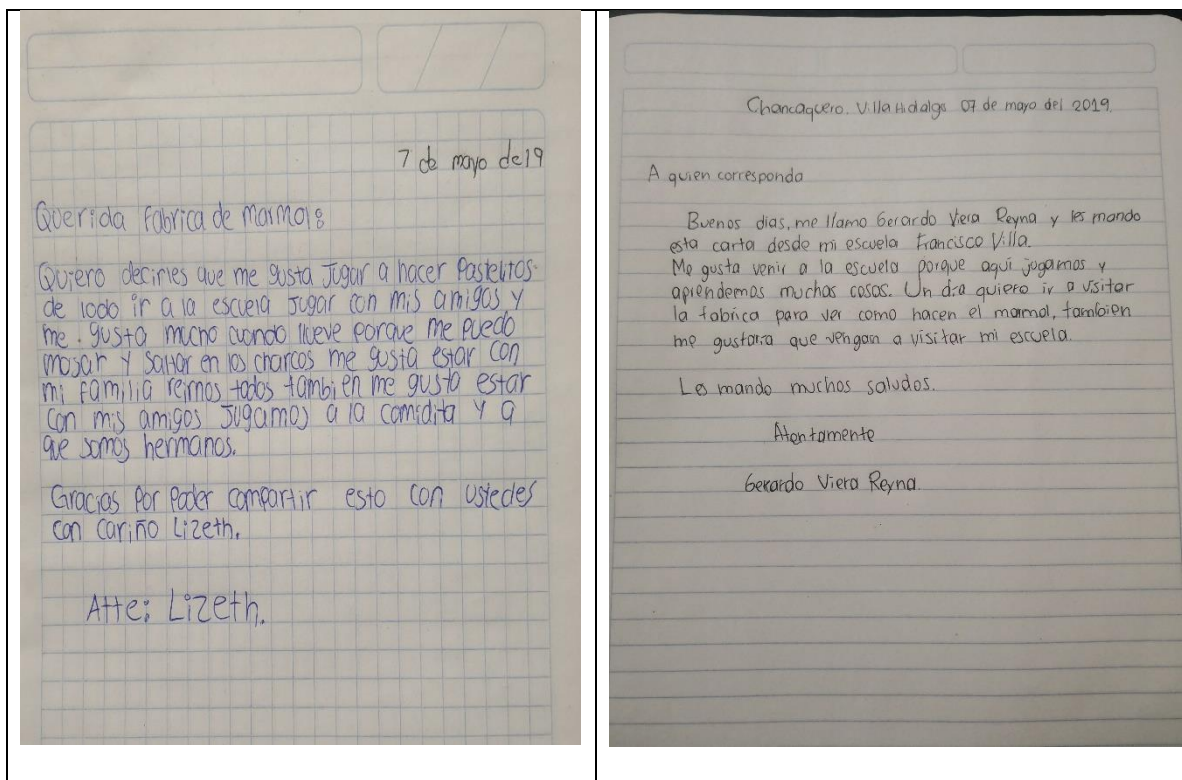 7 de mayo de 19
Querida Fabrica de marmol:
Quiero decirles que me gusta Jugar a hacer Pastelitos
de lodo ir a la escuela Jugar con mis amigos y
me gusta mucho cuando llueve porque me puedo
mojar y saltar en los charcos me gusta estar con
mi familia reirnos todos también me gusta estar
con mis amigos Jugamos a la comidita y a
que somos hermanos.
Gracias Por Poder compartir esto con ustedes
con cariño Lizeth.
Atte: Lizeth.
Chancaquero. Villa Hidalgo 07 de mayo del 2019.
A quien corresponda
Buenos dias, me llamo Gerardo Viera Reyna y les mando
esta carta desde mi escuela Francisco Villa.
Me gusta venir a la escuela porque aquí jugamos y
aprendemos muchas cosas. Un dia quiero ir a visitar
la fabrica para ver como hacen el marmol, tambien
me gustaria que vengan a visitar mi escuela.
Les mando muchos saludos.
Atentamente
Gerardo Viera Reyna.